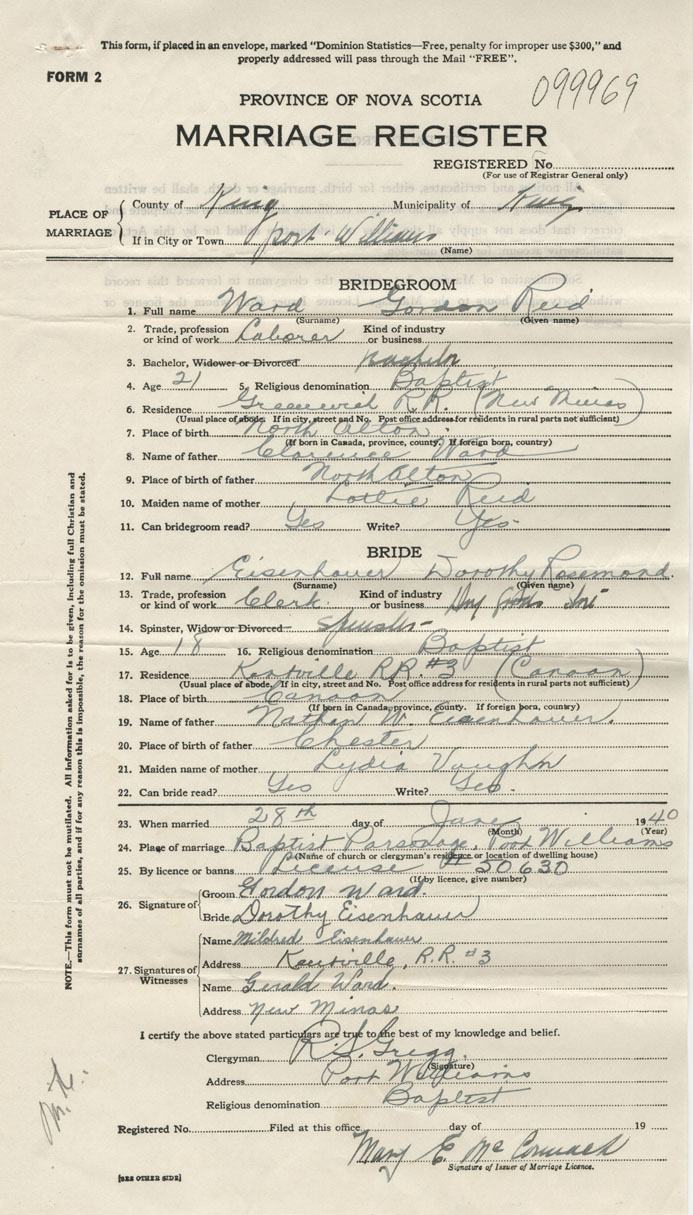 This form, if placed in an envelope, marked "Dominion Statistics—Free, penalty for improper use $300," and
properly addressed will pass through the Mail "FREE".
FORM 2
099969
PROVINCE OF NOVA SCOTIA
MARRIAGE REGISTER
REGISTERED No.
(For use of Registrar General only)
PLACE OF MARRIAGE
County of King Municipality of King
If in City or Town Port Williams
(Name)
BRIDEGROOM
1. Full name Ward Gordon Reid
(Surname) (Given name)
2. Trade, profession or kind of work Laborer Kind of industry or business
3. Bachelor, Widower or Divorced Bachelor
4. Age 21 5. Religious denomination Baptist
6. Residence Greenwich R.R. (New Minas)
(Usual place of abode. If in city, street and No. Post office address for residents in rural parts not sufficient)
7. Place of birth North Alton.
(If born in Canada, province, county. If foreign born, country)
8. Name of father Clarence Ward
9. Place of birth of father North Alton
10. Maiden name of mother Lottie Reid
11. Can bridegroom read? Yes Write? Yes.
BRIDE
12. Full name Eisenhauer Dorothy Rosemond.
(Surname) (Given name)
13. Trade, profession or kind of work Clerk. Kind of industry or business Dry goods store
14. Spinster, Widow or Divorced Spinster
15. Age 18 16. Religious denomination Baptist
17. Residence Kentville R.R. #3 (Canaan)
(Usual place of abode. If in city, street and No. Post office address for residents in rural parts not sufficient)
18. Place of birth Canaan
(If born in Canada, province, county. If foreign born, country)
19. Name of father Nathan W. Eisenhauer.
20. Place of birth of father Chester
21. Maiden name of mother Lydia Vaughn
22. Can bride read? Yes Write? Yes.
23. When married 28th day of June 1940
(Month) (Year)
24. Place of marriage Baptist Parsonage, Port Williams
(Name of church or clergyman's residence or location of dwelling house)
25. By licence or banns License # 50630
(If by licence, give number)
26. Signature of
Groom Gordon Ward.
Bride Dorothy Eisenhauer
27. Signatures of Witnesses
Name Mildred Eisenhauer
Address Kentville, R.R. #3
Name Gerald Ward.
Address New Minas
I certify the above stated particulars are true to the best of my knowledge and belief.
Clergyman R.S. Gregg.
(Signature)
Address Port Williams
Religious denomination Baptist
Registered No. Filed at this office day of 19
Mary E. McCormack
Signature of Issuer of Marriage Licence.
[SEE OTHER SIDE]
NOTE.—This form must not be mutilated. All information asked for is to be given, including full Christian and
surnames of all parties, and if for any reason this is impossible, the reason for the omission must be stated.